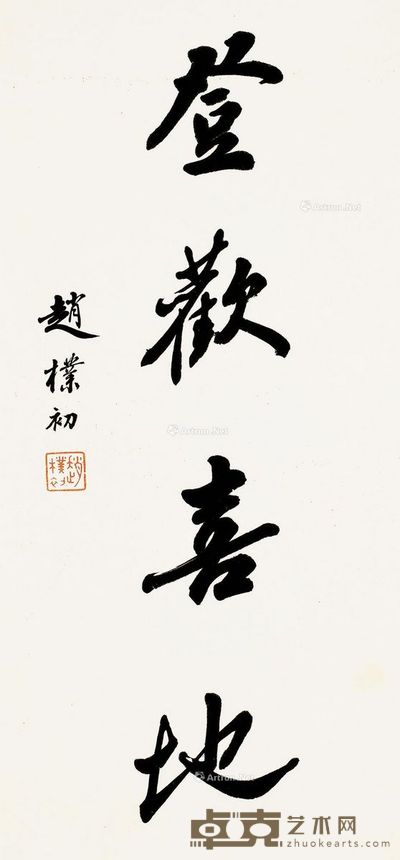 登歡喜地
趙樸初
趙樸初
Artron.Net
Artron.Net
Artron.Net
卓克艺术网
zhuokearts.com